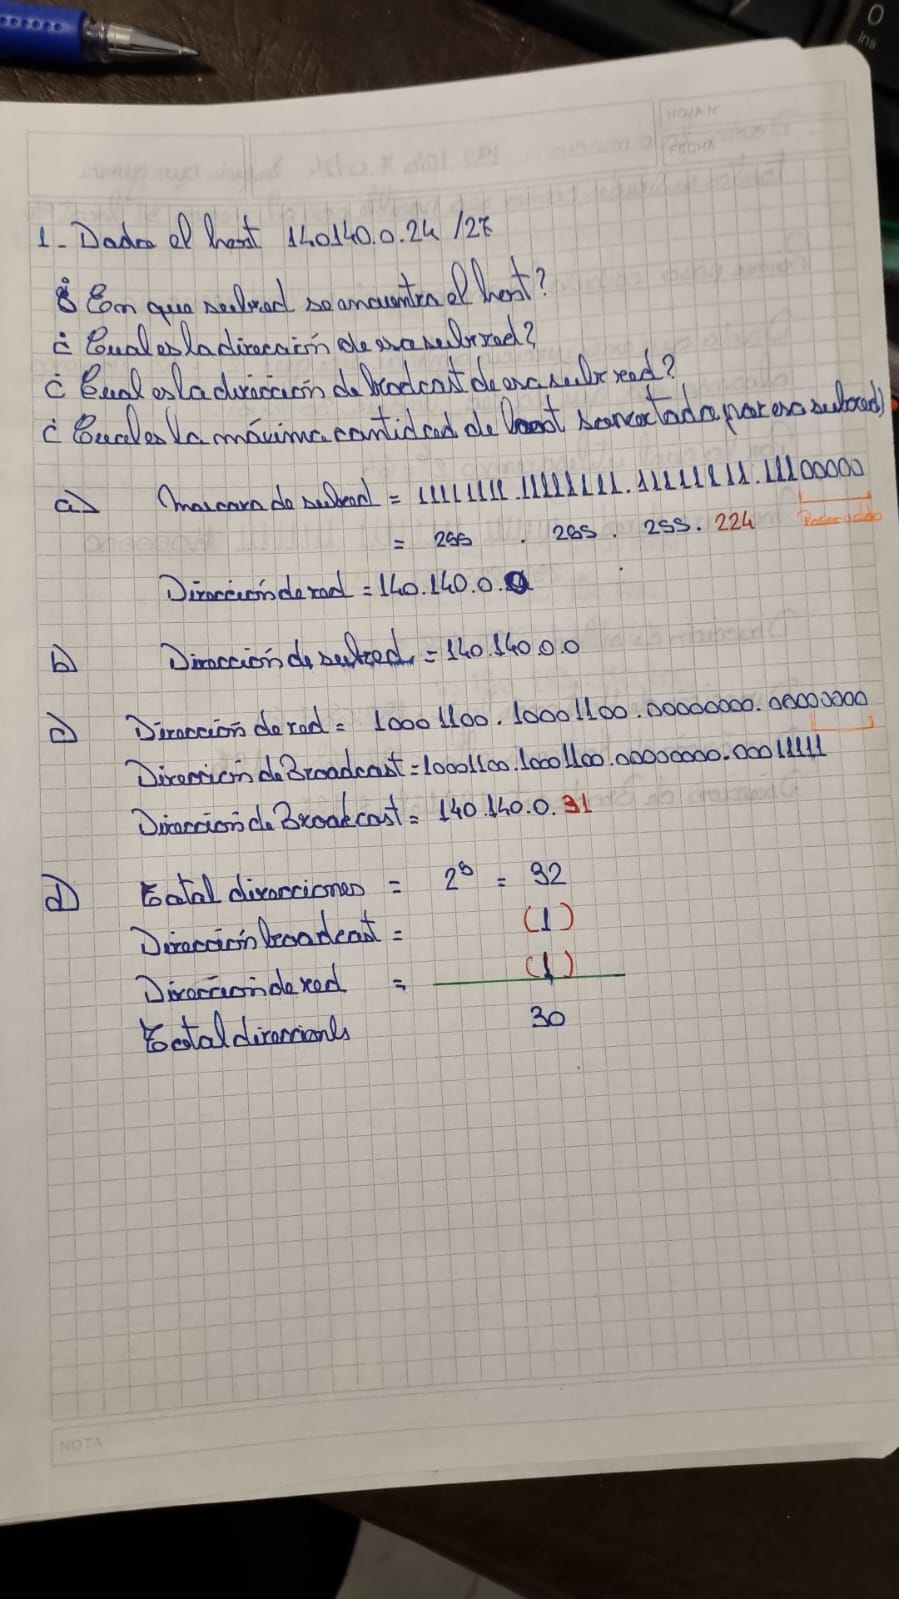 HOJA N°
FECHA
1- Dado el host 140.140.0.24 /27
¿ En que subred se encuentra el host?
¿ Cual es la dirección de esa subred?
¿ Cual es la dirección de brodcast de esa subr red?
¿ Cual es la máxima cantidad de host conectada por esa subred)
a) Mascara de subred = 11111111.11111111.11111111.11100000
= 255 . 255 . 255. 224
Dirección de red = 140.140.0.0
b) Dirección de subred = 140.140.0.0
c) Dirección de red = 10001100.10001100.00000000.00000000
Dirección de Broadcast = 10001100.10001100.00000000.00011111
Dirección de Broadcast = 140.140.0.31
d) Total direcciones = 2⁵ = 32
Dirección broadcast = (1)
Dirección de red = (1)
Total direcciones 30
NOTA